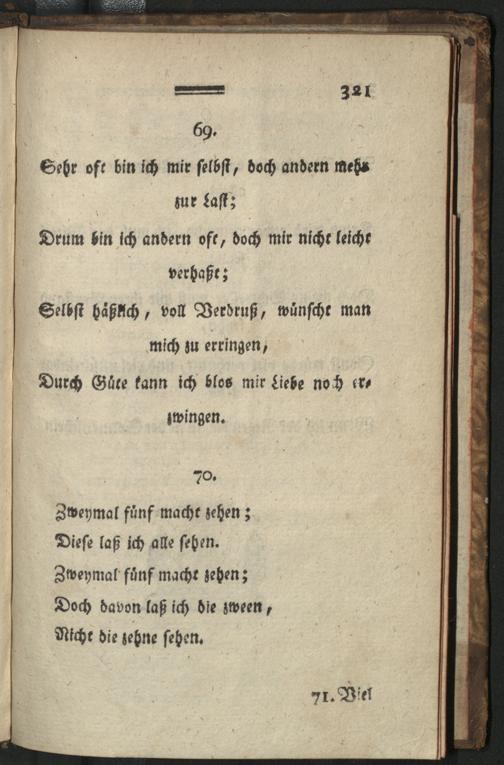 321
69.
Sehr oft bin ich mir selbst, doch andern mehr
zur Last;
Drum bin ich andern oft, doch mir nicht leicht
verhaßt;
Selbst häßlich, voll Verdruß, wünscht man
mich zu erringen,
Durch Güte kann ich blos mir Liebe noch er-
zwingen.
70.
Zweymal fünf macht zehen;
Diese laß ich alle sehen.
Zweymal fünf macht zehen;
Doch davon laß ich die zween,
Nicht die zehne sehen.
71. Viel